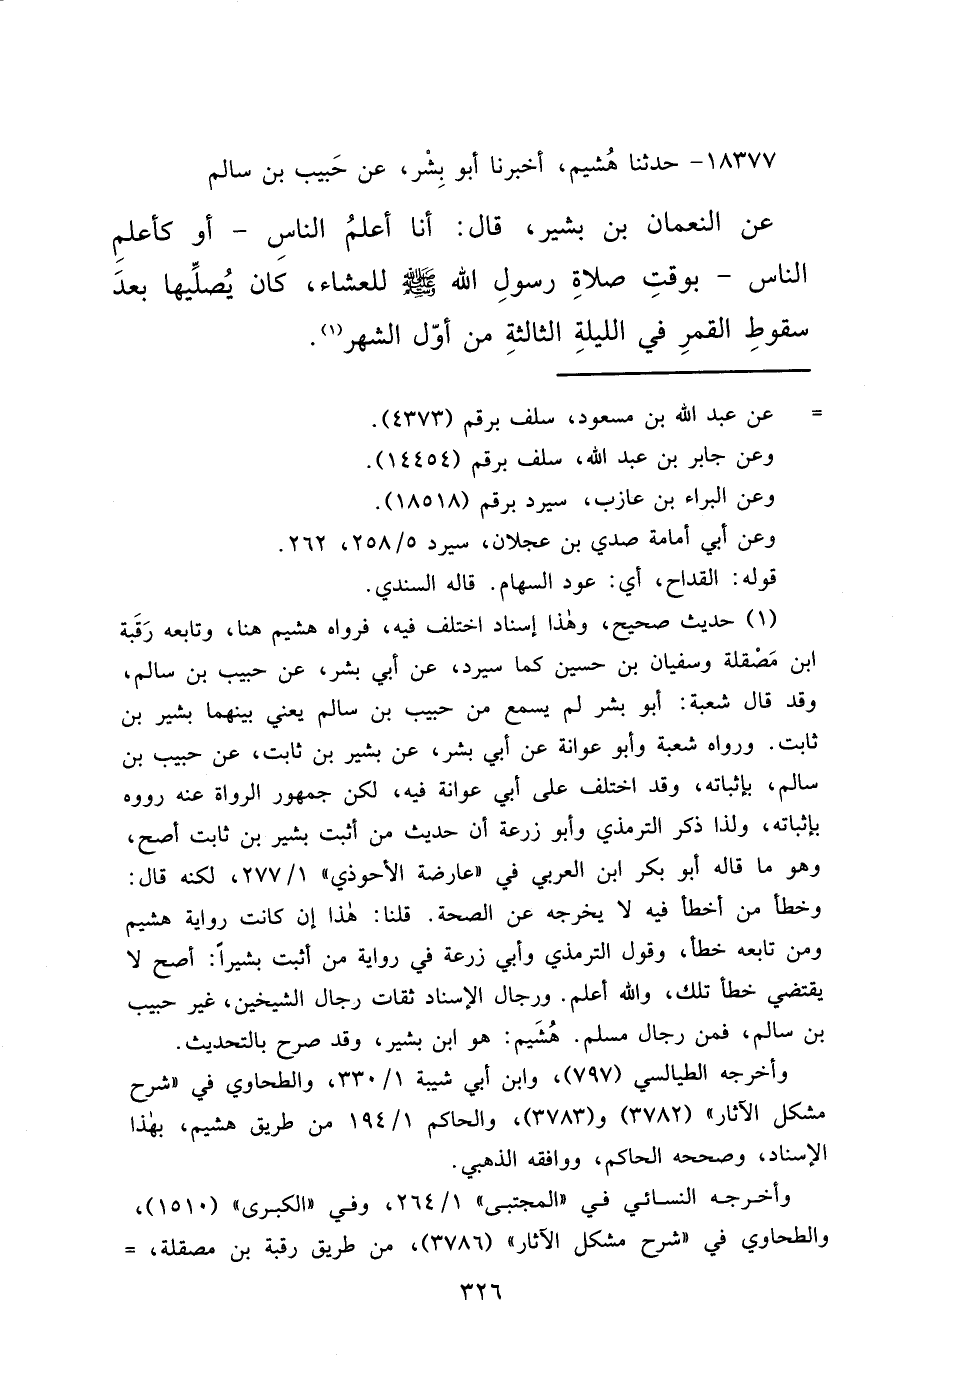 ١٨٣٧٧- حدثنا هُشيم، أخبرنا أبو بِشْر، عن حَبيب بن سالم
عن النعمان بن بشير، قال: أنا أعلمُ الناسِ - أو كأعلمِ
الناس - بوقتِ صلاةِ رسولِ الله ﷺ للعشاء، كان يُصلِّيها بعدَ
سقوطِ القمرِ في الليلةِ الثالثةِ من أوّل الشهر(١).
= عن عبد الله بن مسعود، سلف برقم (٤٣٧٣).
وعن جابر بن عبد الله، سلف برقم (١٤٤٥٤).
وعن البراء بن عازب، سيرد برقم (١٨٥١٨).
وعن أبي أمامة صدي بن عجلان، سيرد ٢٥٨/٥، ٢٦٢.
قوله: القداح، أي: عود السهام. قاله السندي.
(١) حديث صحيح، وهٰذا إسناد اختلف فيه، فرواه هشيم هنا، وتابعه رَقَبة
ابن مَصْقلة وسفيان بن حسين كما سيرد، عن أبي بشر، عن حبيب بن سالم،
وقد قال شعبة: أبو بشر لم يسمع من حبيب بن سالم يعني بينهما بشير بن
ثابت. ورواه شعبة وأبو عوانة عن أبي بشر، عن بشير بن ثابت، عن حبيب بن
سالم، بإثباته، وقد اختلف على أبي عوانة فيه، لكن جمهور الرواة عنه رووه
بإثباته، ولذا ذكر الترمذي وأبو زرعة أن حديث من أثبت بشير بن ثابت أصح،
وهو ما قاله أبو بكر ابن العربي في «عارضة الأحوذي» ٢٧٧/١، لكنه قال:
وخطأ من أخطأ فيه لا يخرجه عن الصحة. قلنا: هٰذا إن كانت رواية هشيم
ومن تابعه خطأ، وقول الترمذي وأبي زرعة في رواية من أثبت بشيراً: أصح لا
يقتضي خطأ تلك، والله أعلم. ورجال الإسناد ثقات رجال الشيخين، غير حبيب
بن سالم، فمن رجال مسلم. هُشَيم: هو ابن بشير، وقد صرح بالتحديث.
وأخرجه الطيالسي (٧٩٧)، وابن أبي شيبة ٣٣٠/١، والطحاوي في «شرح
مشكل الآثار» (٣٧٨٢) و(٣٧٨٣)، والحاكم ١٩٤/١ من طريق هشيم، بهٰذا
الإسناد، وصححه الحاكم، ووافقه الذهبي.
وأخرجه النسائي في «المجتبى» ٢٦٤/١، وفي «الكبرى» (١٥١٠)،
والطحاوي في «شرح مشكل الآثار» (٣٧٨٦)، من طريق رقبة بن مصقلة، =
٣٢٦